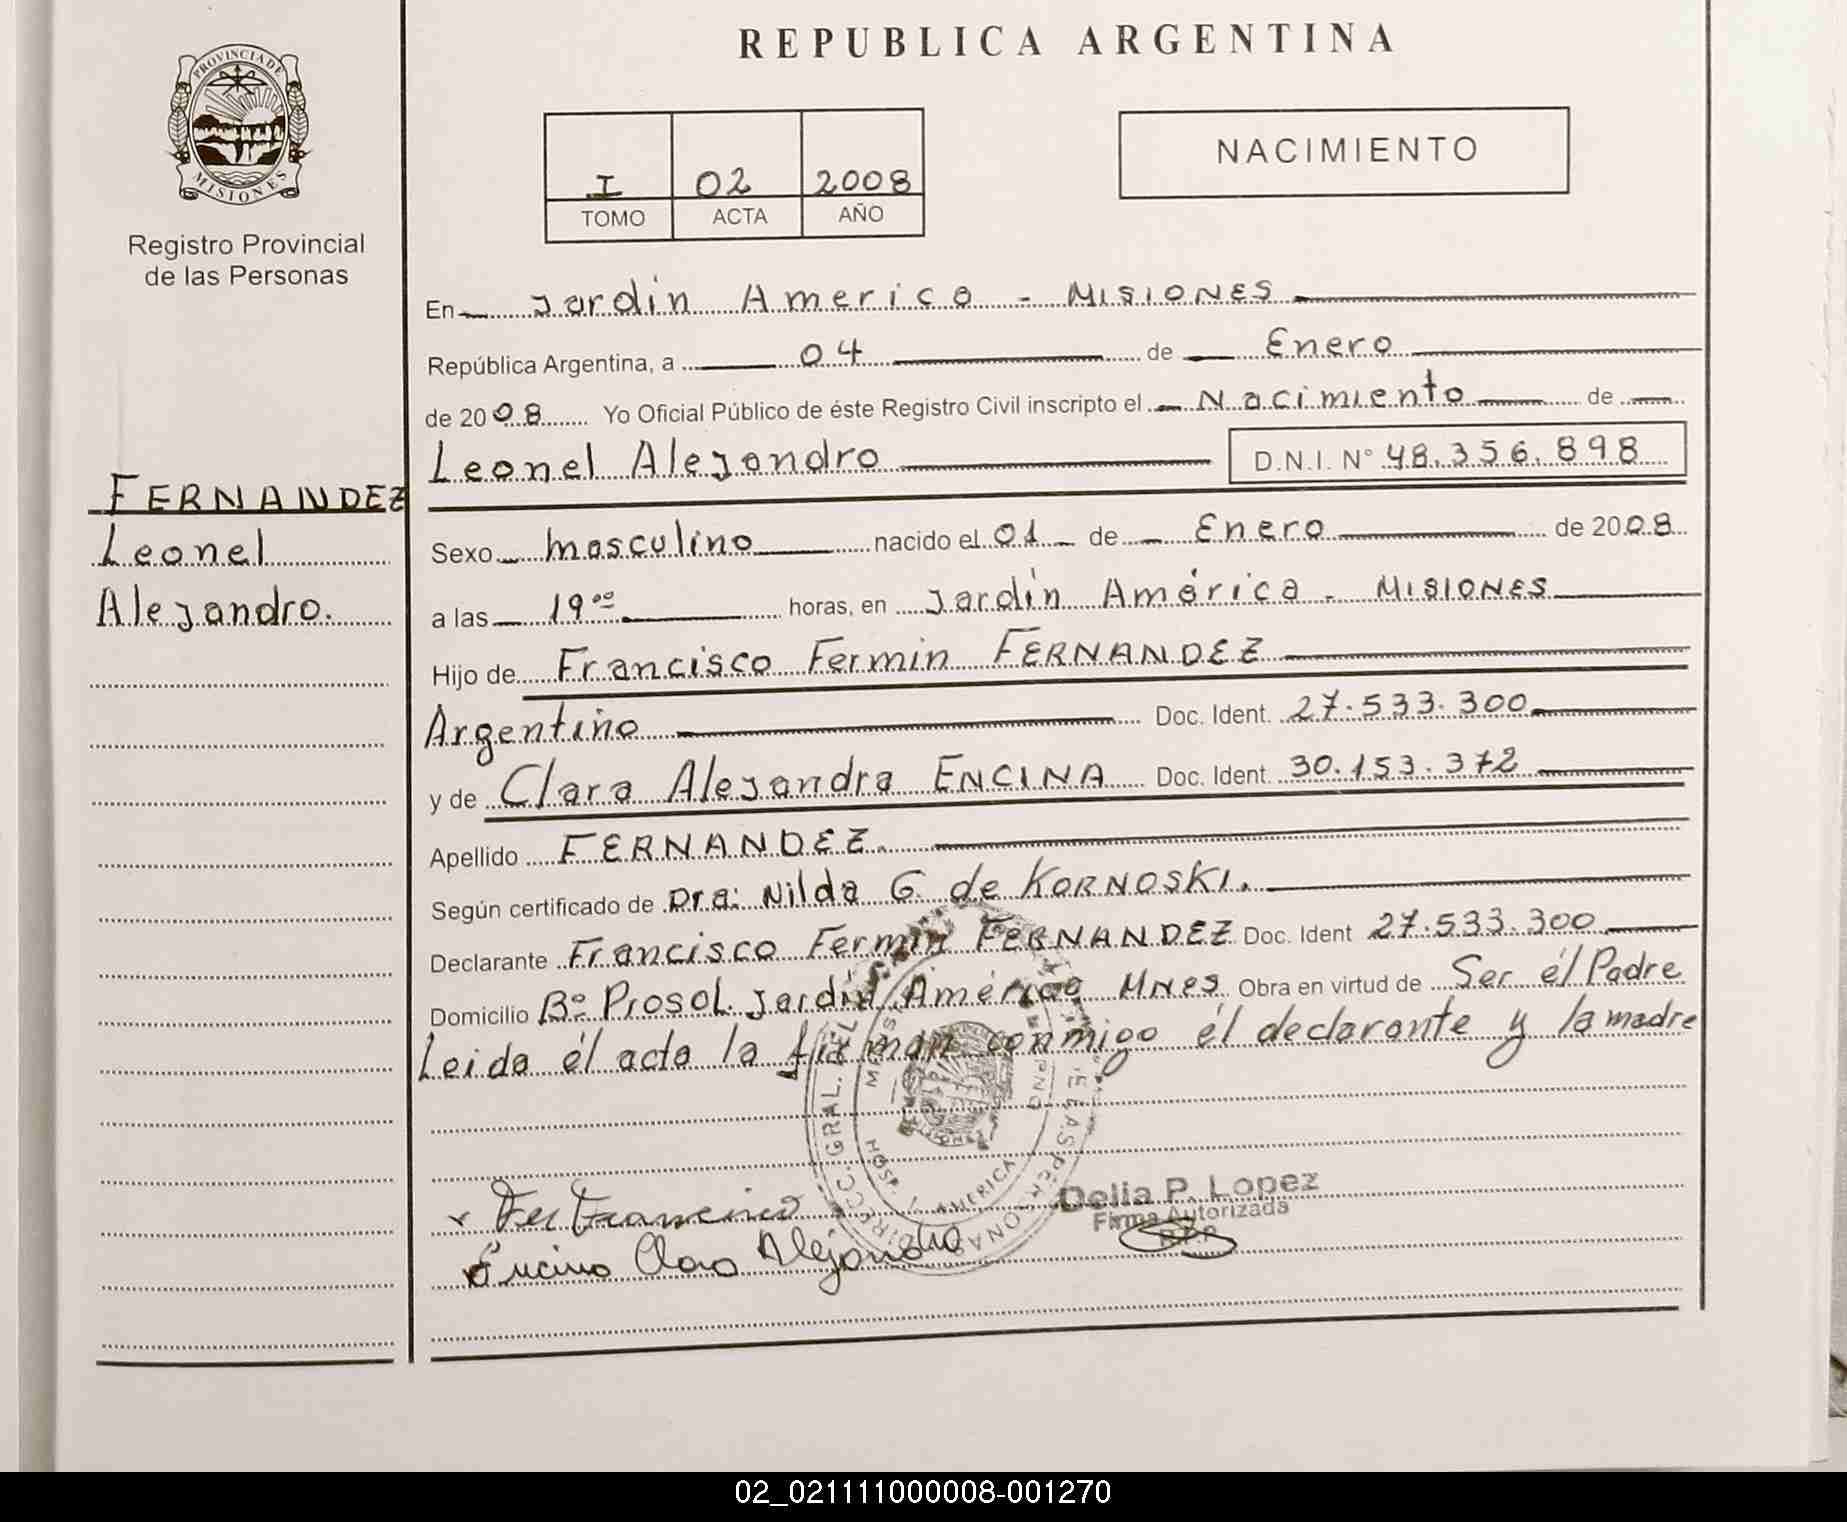 REPUBLICA ARGENTINA
PROVINCIA DE
MISIONES
Registro Provincial
de las Personas
I 02 2008
TOMO ACTA AÑO
NACIMIENTO
En Jardin America - MISIONES
República Argentina, a 04 de Enero
de 2008 Yo Oficial Público de éste Registro Civil inscripto el Nacimiento de
Leonel Alejandro D.N.I. N° 48.356.898
FERNANDEZ
Leonel
Alejandro.
Sexo masculino nacido el 01 de Enero de 2008
a las 19 00 horas, en Jardín América - MISIONES
Hijo de Francisco Fermin FERNANDEZ
Argentino Doc. Ident. 27.533.300
y de Clara Alejandra ENCINA Doc. Ident. 30.153.372
Apellido FERNANDEZ.
Según certificado de Dra: Nilda G. de KORNOSKI.
Declarante Francisco Fermin FERNANDEZ Doc. Ident 27.533.300
Domicilio Bº Prosol. Jardín América Mnes Obra en virtud de Ser él Padre
Leida él acta la firman conmigo él declarante y la madre
DIRECC. GRAL. DEL
PERSONAS
HOSP. J. AMERICA
Fer Francisco
Encina Clara Alejandra
Delia P. Lopez
Firma Autorizada
R.P.P.
02_021111000008-001270